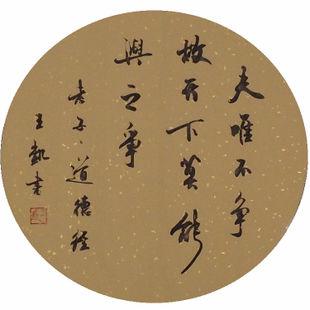 夫唯不争
故天下莫能
與之争
老子·道德经
王凱书